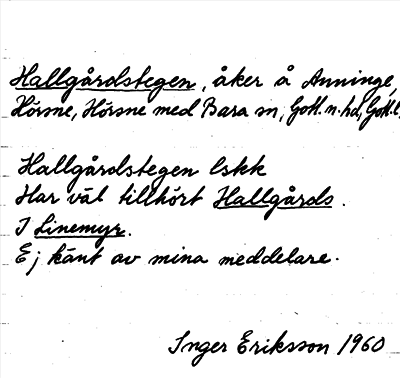 Hallgårdstegen, åker å Anninge,
Hörsne, Hörsne med Bara sn, Gotl. n. hd, Gotl. l.
Hallgårdstegen lskk
Har väl tillhört Hallgårds.
I Linemyr.
Ej känt av mina meddelare.
Inger Eriksson 1960